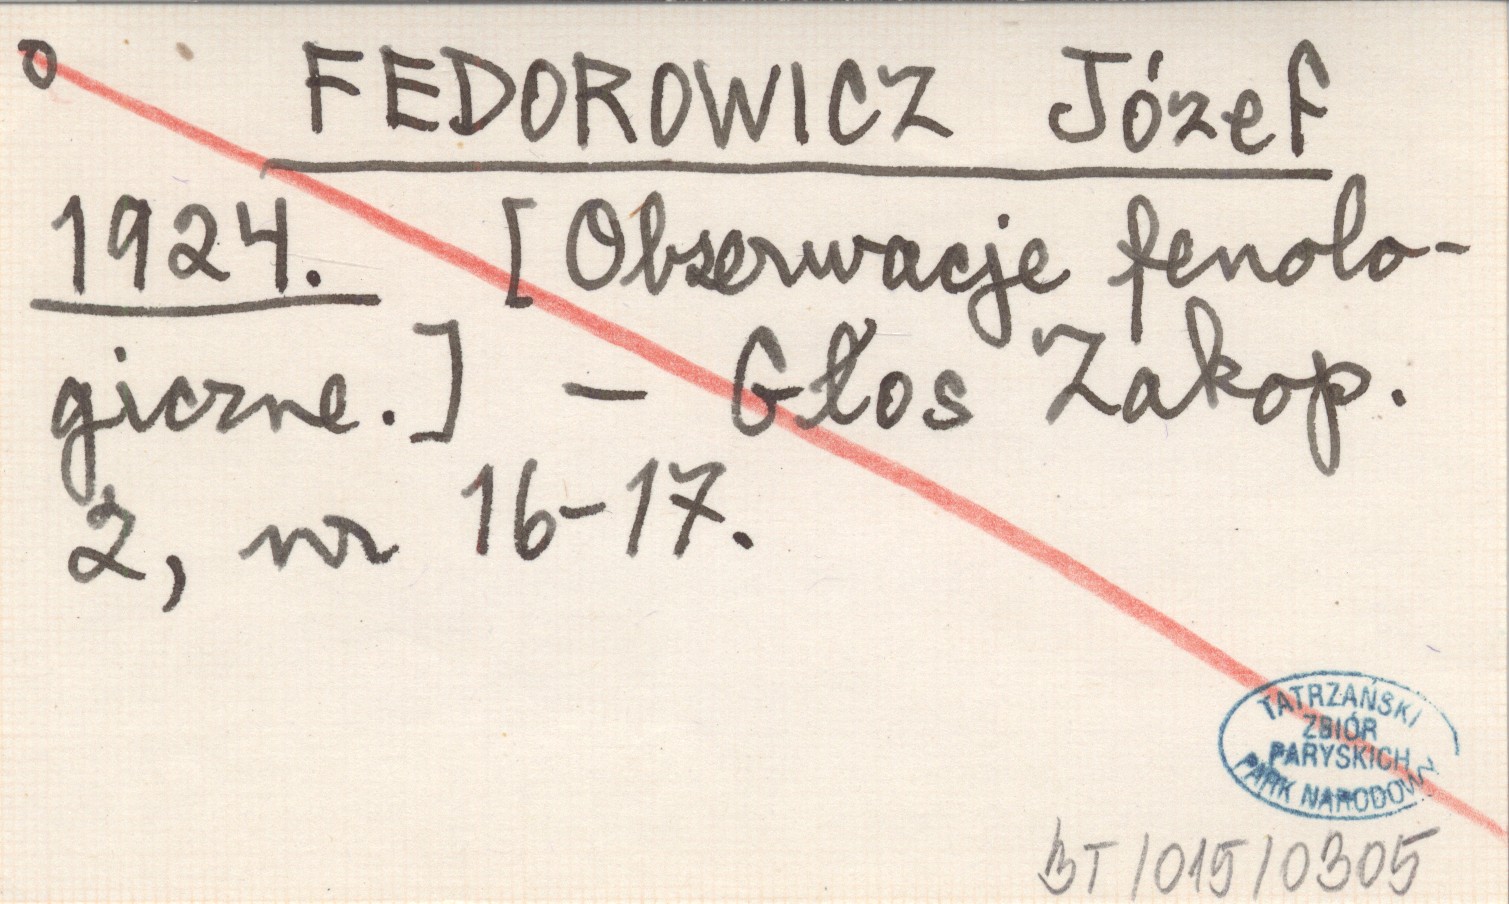 o
FEDOROWICZ Józef
1924. [Obserwacje fenolo-
giczne.] – Głos Zakop.
2, nr 16-17.
TATRZAŃSKI
ZBIÓR
PARYSKICH
PARK NARODOWY
BT/015/0305